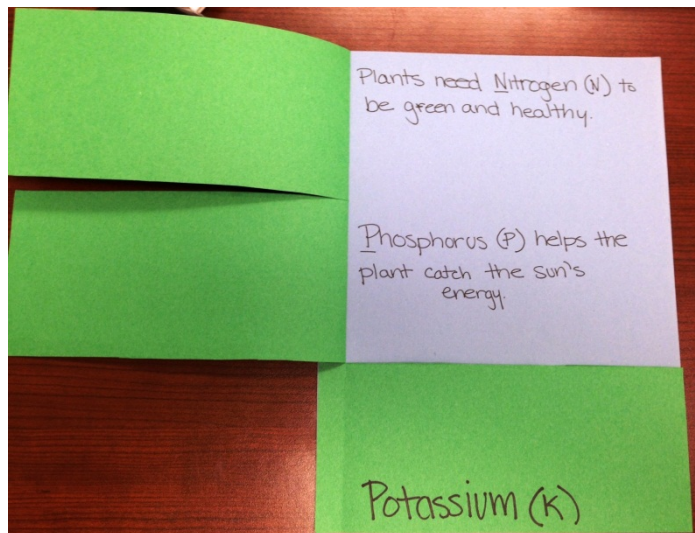 Plants need Nitrogen (N) to
be green and healthy.
Phosphorus (P) helps the
plant catch the sun's
energy.
Potassium (K)